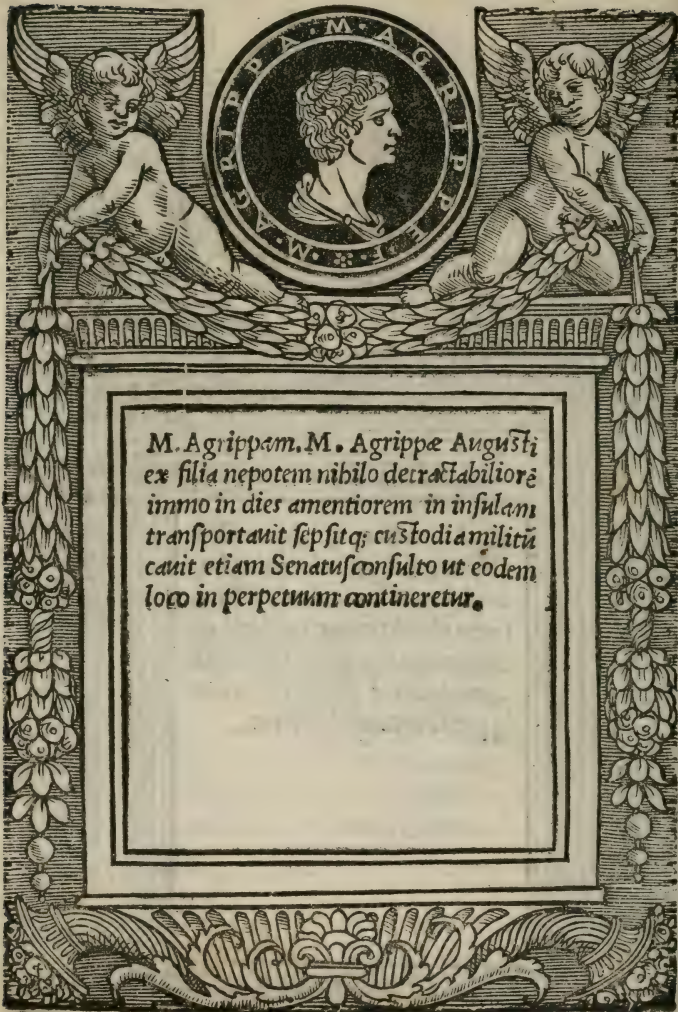 M · AGRIPPA · M · AGRIPPE F
M. Agrippam. M. Agrippæ Augusti
ex filia nepotem nihilo detractabiliorē
immo in dies amentiorem in insulam
transportauit sepsitq; custodia militū
cauit etiam Senatusconsulto ut eodem
loco in perpetuum contineretur.